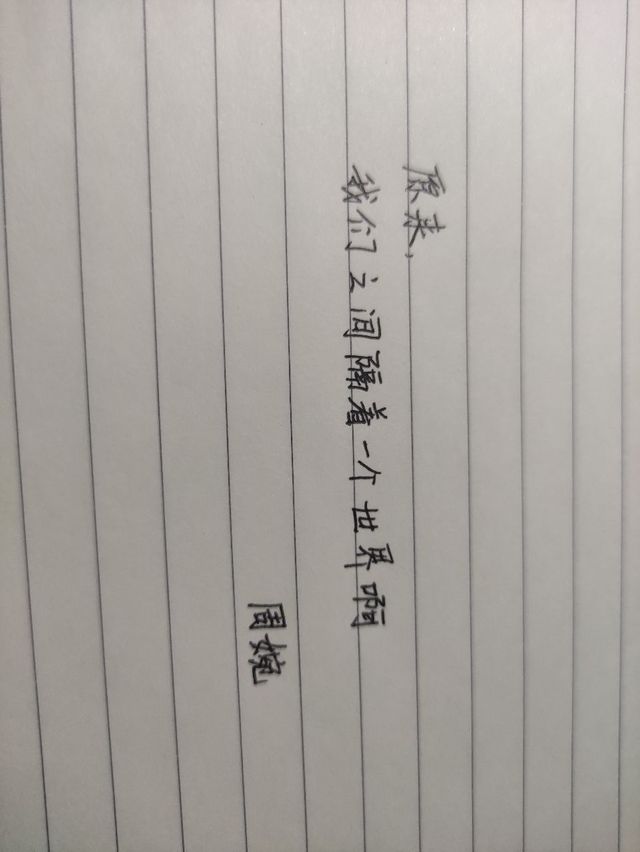 原来,
我们之间隔着一个世界啊
周婉